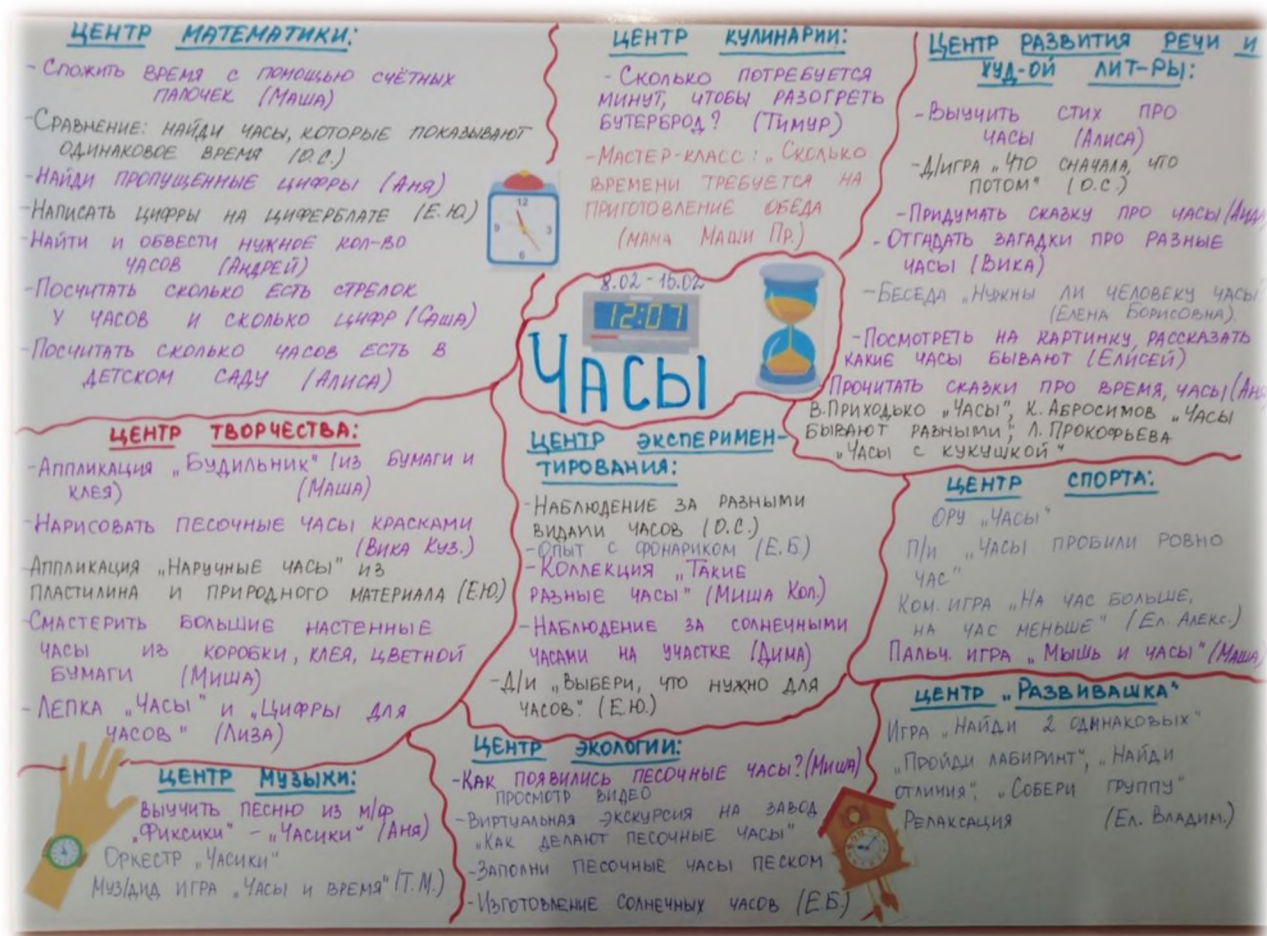 ЦЕНТР МАТЕМАТИКИ:
- Сложить время с помощью счётных
палочек (Маша)
- Сравнение: найди часы, которые показывают
одинаковое время (О.С.)
- Найди пропущенные цифры (Аня)
- Написать цифры на циферблате (Е.Ю.)
- Найти и обвести нужное кол-во
часов (Андрей)
- Посчитать сколько есть стрелок
у часов и сколько цифр (Саша)
- Посчитать сколько часов есть в
детском саду (Алиса)
12
9
3
6
ЦЕНТР КУЛИНАРИИ:
- Сколько потребуется
минут, чтобы разогреть
бутерброд? (Тимур)
- Мастер-класс: „Сколько
времени требуется на
приготовление обеда
(мама Маши Пр.)
ЦЕНТР РАЗВИТИЯ РЕЧИ И
ХУД-ОЙ ЛИТ-РЫ:
- Выучить стих про
часы (Алиса)
- Д/игра „Что сначала, что
потом" (О.С.)
- Придумать сказку про часы
- Отгадать загадки про разные
часы (Вика)
- Беседа „Нужны ли человеку часы
(Елена Борисовна).
- Посмотреть на картинку, рассказать
какие часы бывают (Елисей)
- Прочитать сказки про время, часы (Аня
В.Приходько „Часы", К. Абросимов „Часы
бывают разными", Л. Прокофьева
„Часы с кукушкой"
8.02 - 15.02
12:07
ЧАСЫ
ЦЕНТР ТВОРЧЕСТВА:
- Аппликация „Будильник" (из бумаги и
клея) (Маша)
- Нарисовать песочные часы красками
(Вика Куз.)
- Аппликация „Наручные часы" из
пластилина и природного материала (Е.Ю.)
- Смастерить большие настенные
часы из коробки, клея, цветной
бумаги (Миша)
- Лепка „Часы" и „Цифры для
часов" (Лиза)
ЦЕНТР ЭКСПЕРИМЕН-
ТИРОВАНИЯ:
- Наблюдение за разными
видами часов (О.С.)
- Опыт с фонариком (Е.Б.)
- Коллекция „Такие
разные часы" (Миша Кол.)
- Наблюдение за солнечными
часами на участке (Дима)
- Д/и „Выбери, что нужно для
часов." (Е.Ю.)
ЦЕНТР СПОРТА:
ОРУ „Часы"
П/и „Часы пробили ровно
час"
Ком. игра „На час больше,
на час меньше" (Ел. Алекс.)
Пальч. игра „Мышь и часы" (Маша)
ЦЕНТР МУЗЫКИ:
Выучить песню из м/ф
„Фиксики" - „Часики" (Аня)
Оркестр „Часики"
Муз/дид игра „Часы и время" (Т.М.)
ЦЕНТР ЭКОЛОГИИ:
- Как появились песочные часы? (Миша)
просмотр видео
- Виртуальная экскурсия на завод
„Как делают песочные часы"
- Заполни песочные часы песком
- Изготовление солнечных часов (Е.Б.)
ЦЕНТР „РАЗВИВАШКА"
Игра „Найди 2 одинаковых"
„Пройди лабиринт", „Найди
отличия", „Собери группу"
Релаксация (Ел. Владим.)